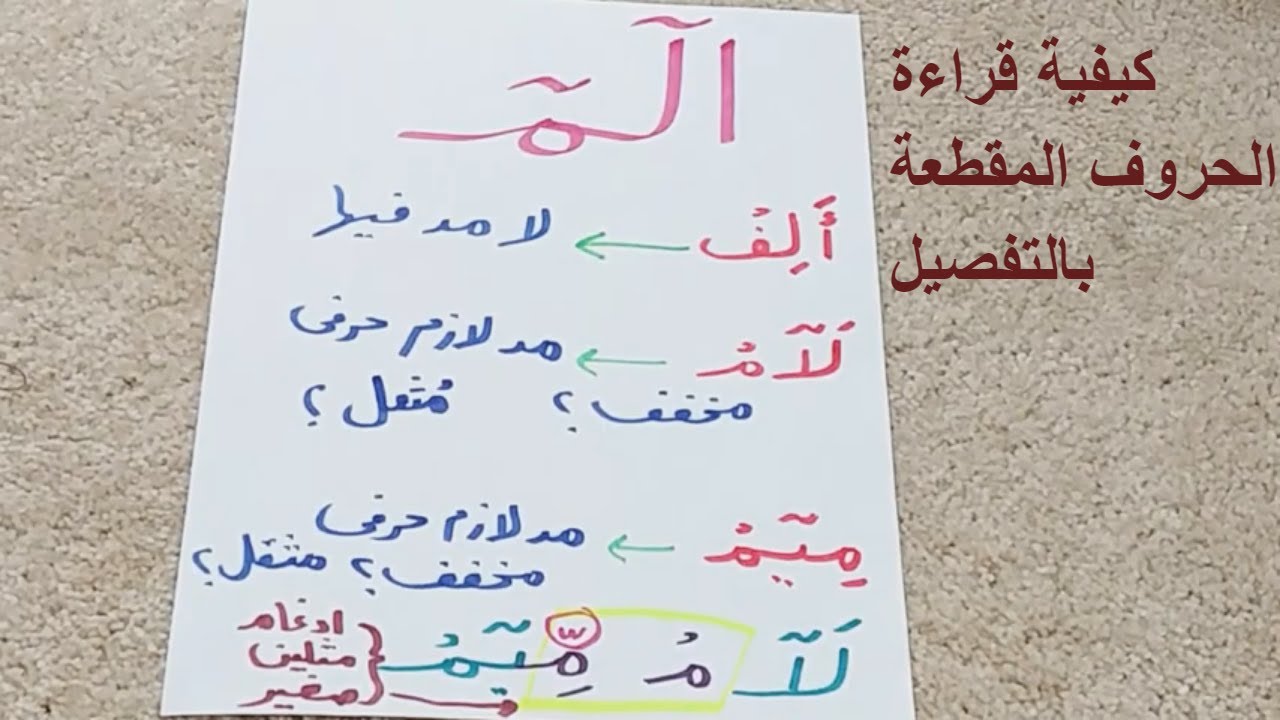 كيفية قراءة
الحروف المقطعة
بالتفصيل
الٓمٓ
أَلِفْ ← لا مد فيها
لَآمْ ← مد لازم حرفى
مخفف؟ مُثقل؟
مِيٓمْ ← مد لازم حرفى
مخفف؟ مثقل؟
لَآ مْ مِّيٓمْ } ادغام
مثلين
صغير